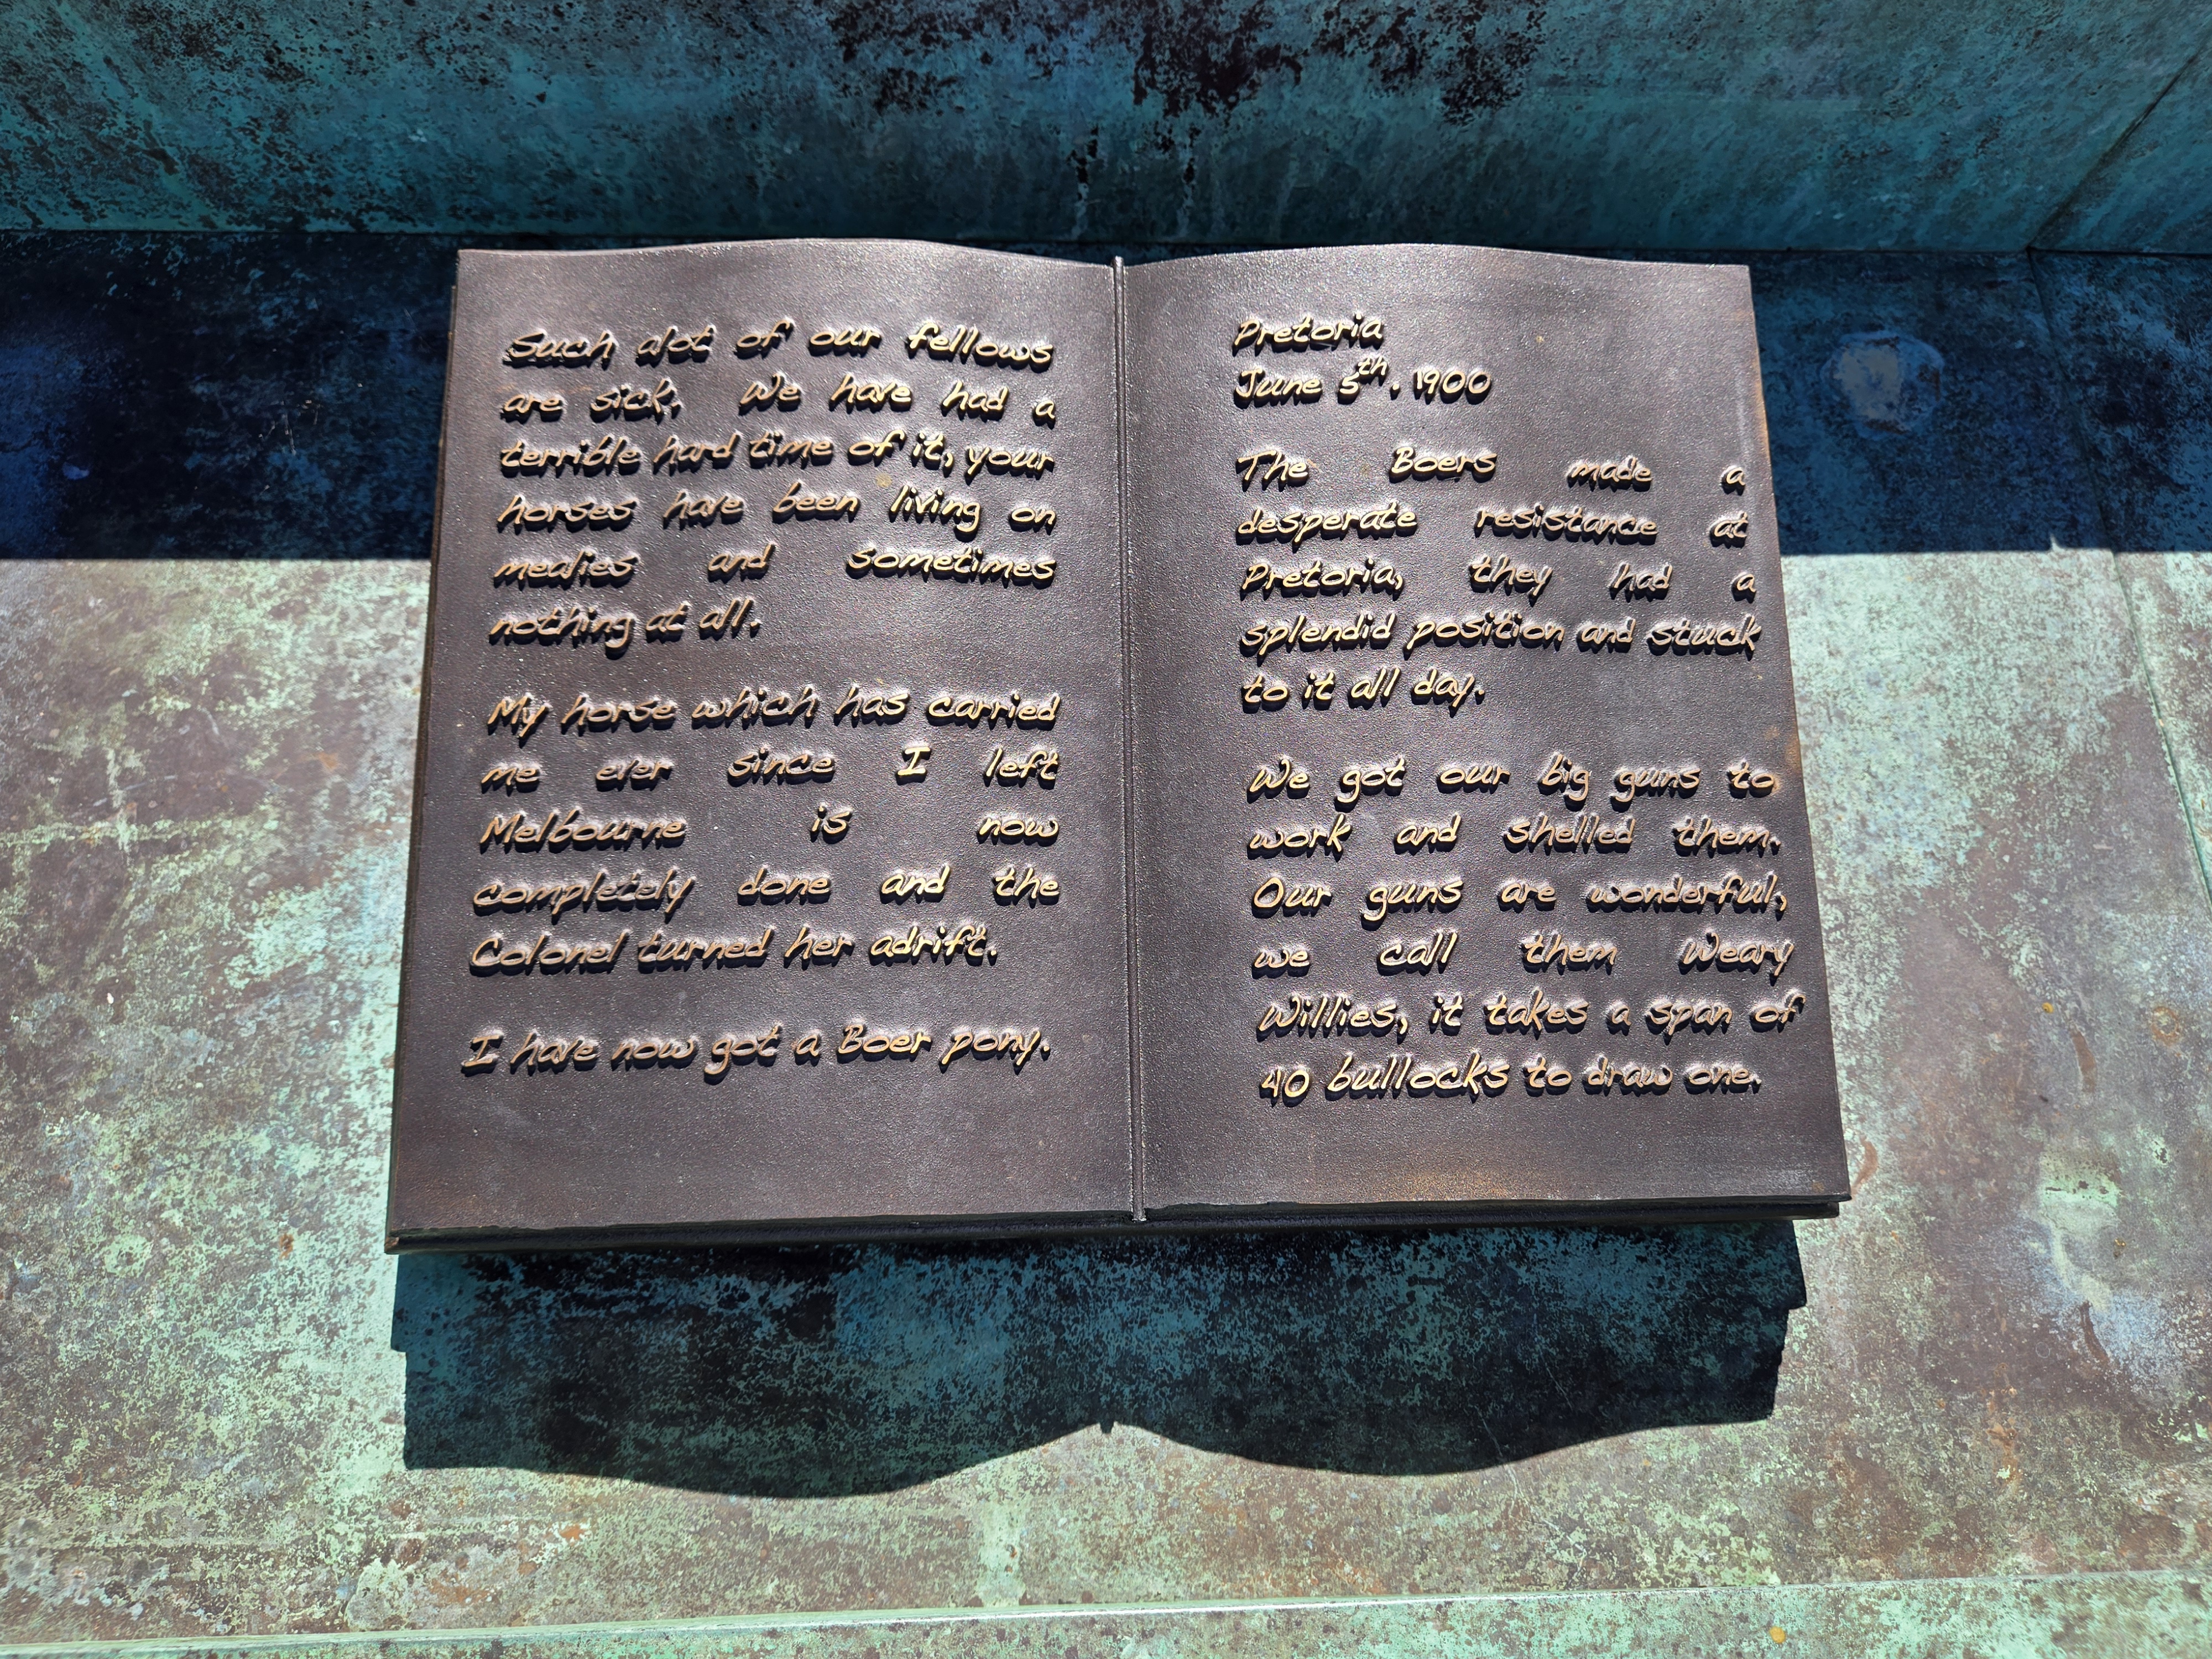 Such alot of our fellows
are sick. We have had a
terrible hard time of it, your
horses have been living on
mealies and sometimes
nothing at all.
My horse which has carried
me ever since I left
Melbourne is now
completely done and the
Colonel turned her adrift.
I have now got a Boer pony.
Pretoria
June 5th. 1900
The Boers made a
desperate resistance at
Pretoria, they had a
splendid position and stuck
to it all day.
We got our big guns to
work and shelled them.
Our guns are wonderful,
we call them Weary
Willies, it takes a span of
40 bullocks to draw one.